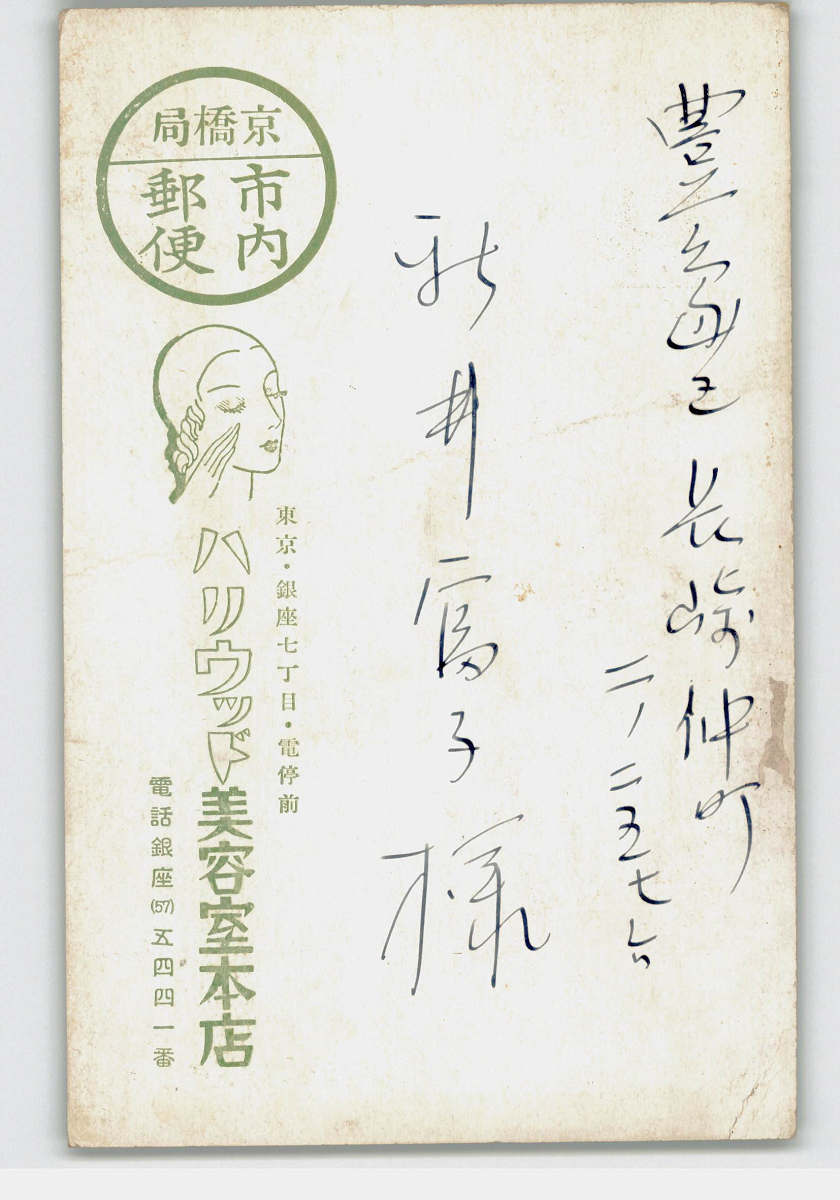 豊島区長崎仲町
二ノ二五七六
新井富子様
京橋局
市内
郵便
東京・銀座七丁目・電停前
ハリウッド美容室本店
電話銀座(57)五四四一番